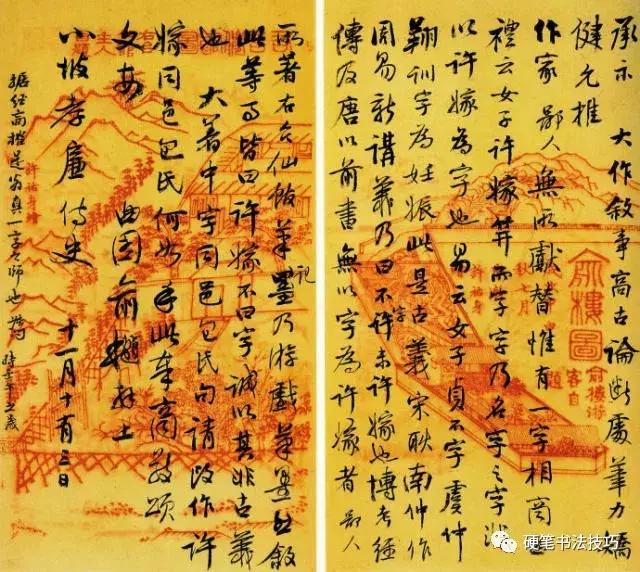 承示　大作敘事高古論斷處筆力矯
健允推
作家　鄙人無所獻替惟有一字相商
禮云女子許嫁笄而字字乃名字之字非
以許嫁為字也易云女子貞不字虞仲
翔訓字為妊娠此是古義宋耿南仲作
周易新講義乃曰不許字未許嫁也博考經
傳及唐以前書無以字為許嫁者　鄙人
所著右台仙館筆記乃游戲筆墨然敘
此等事皆曰許嫁不曰字誠以其非古義
也　大著中字同邑包氏句請改作許
嫁同邑包氏何如手此奉商敬頌
文安　曲園俞樾拜上
小坡孝廉侍史　十一月十有三日
據經商榷　翁真一字之師也
俞樓圖
俞樓游
客自
硬笔书法技巧